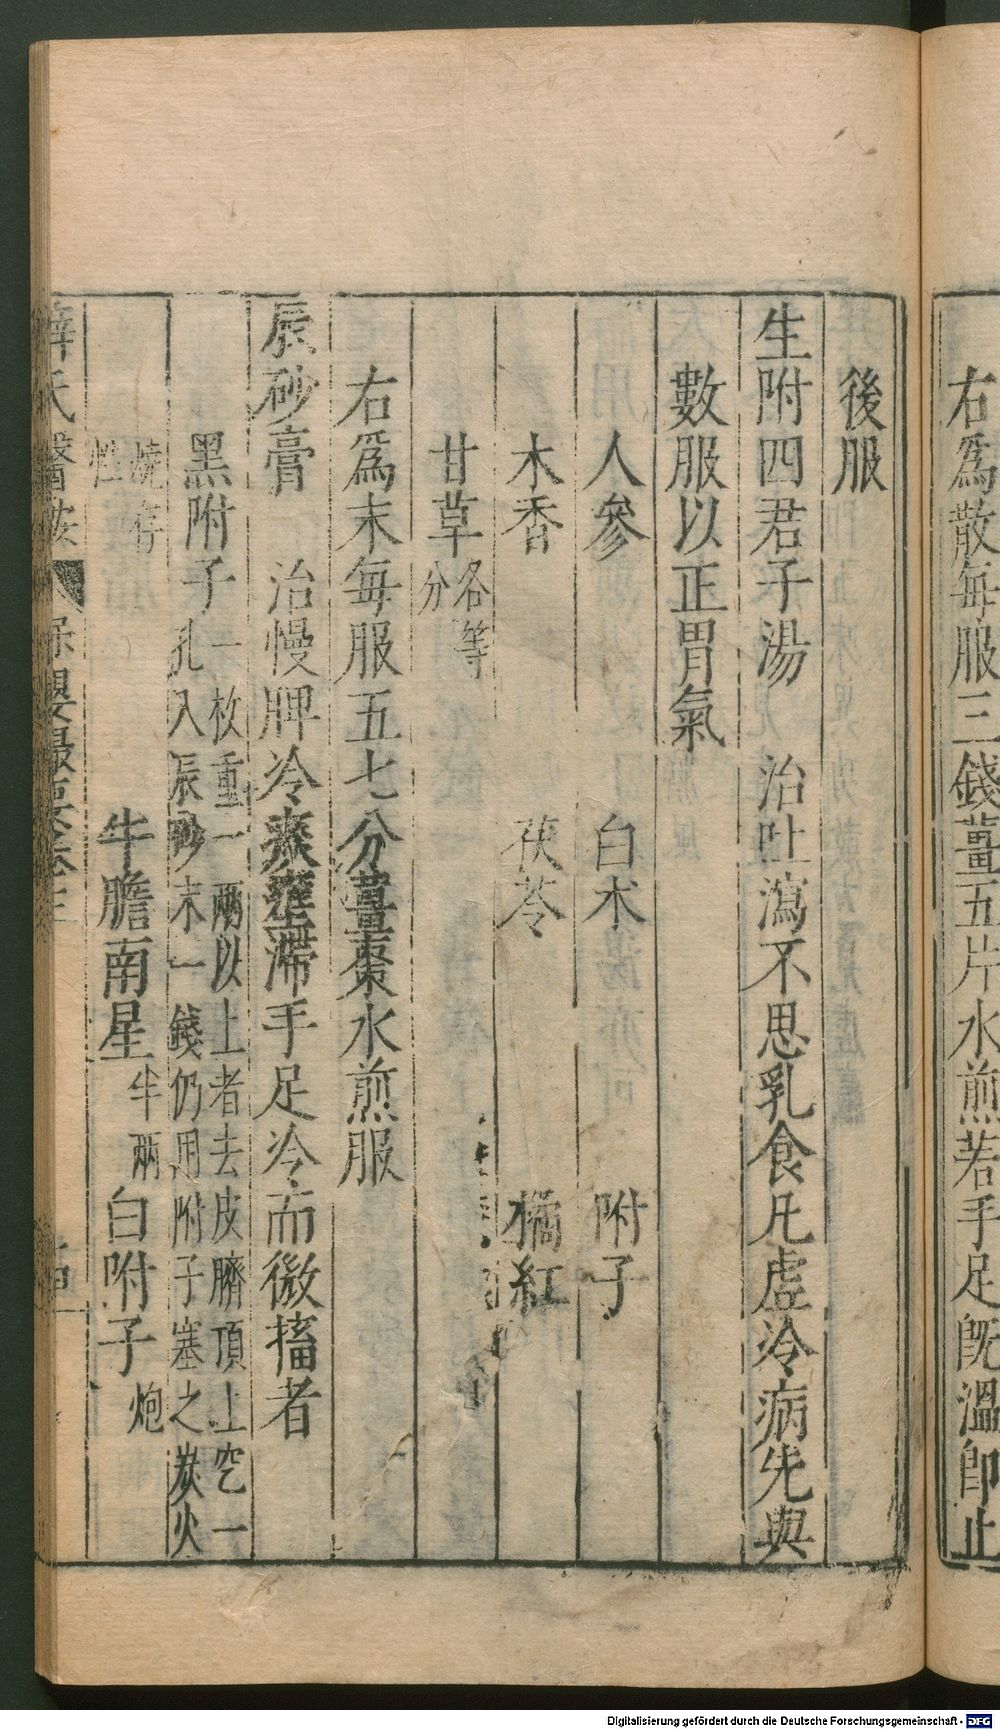 右為散每服三錢薑五片水煎若手足旣溫卽止
後服
生附四君子湯　治吐瀉不思乳食凡虛冷病先與
數服以正胃氣
人參　白术　附子
木香　茯苓　橘紅
甘草各等分
右為末每服五七分薑棗水煎服
辰砂膏　治慢脾冷痰壅滯手足冷而微搐者
黑附子一枚重一兩以上者去皮臍頂上空一孔入辰砂末一錢仍用附子塞之炭火
燒存性　牛膽南星半兩　白附子炮
薛氏醫按　保嬰撮要卷三
Digitalisierung gefördert durch die Deutsche Forschungsgemeinschaft - DFG